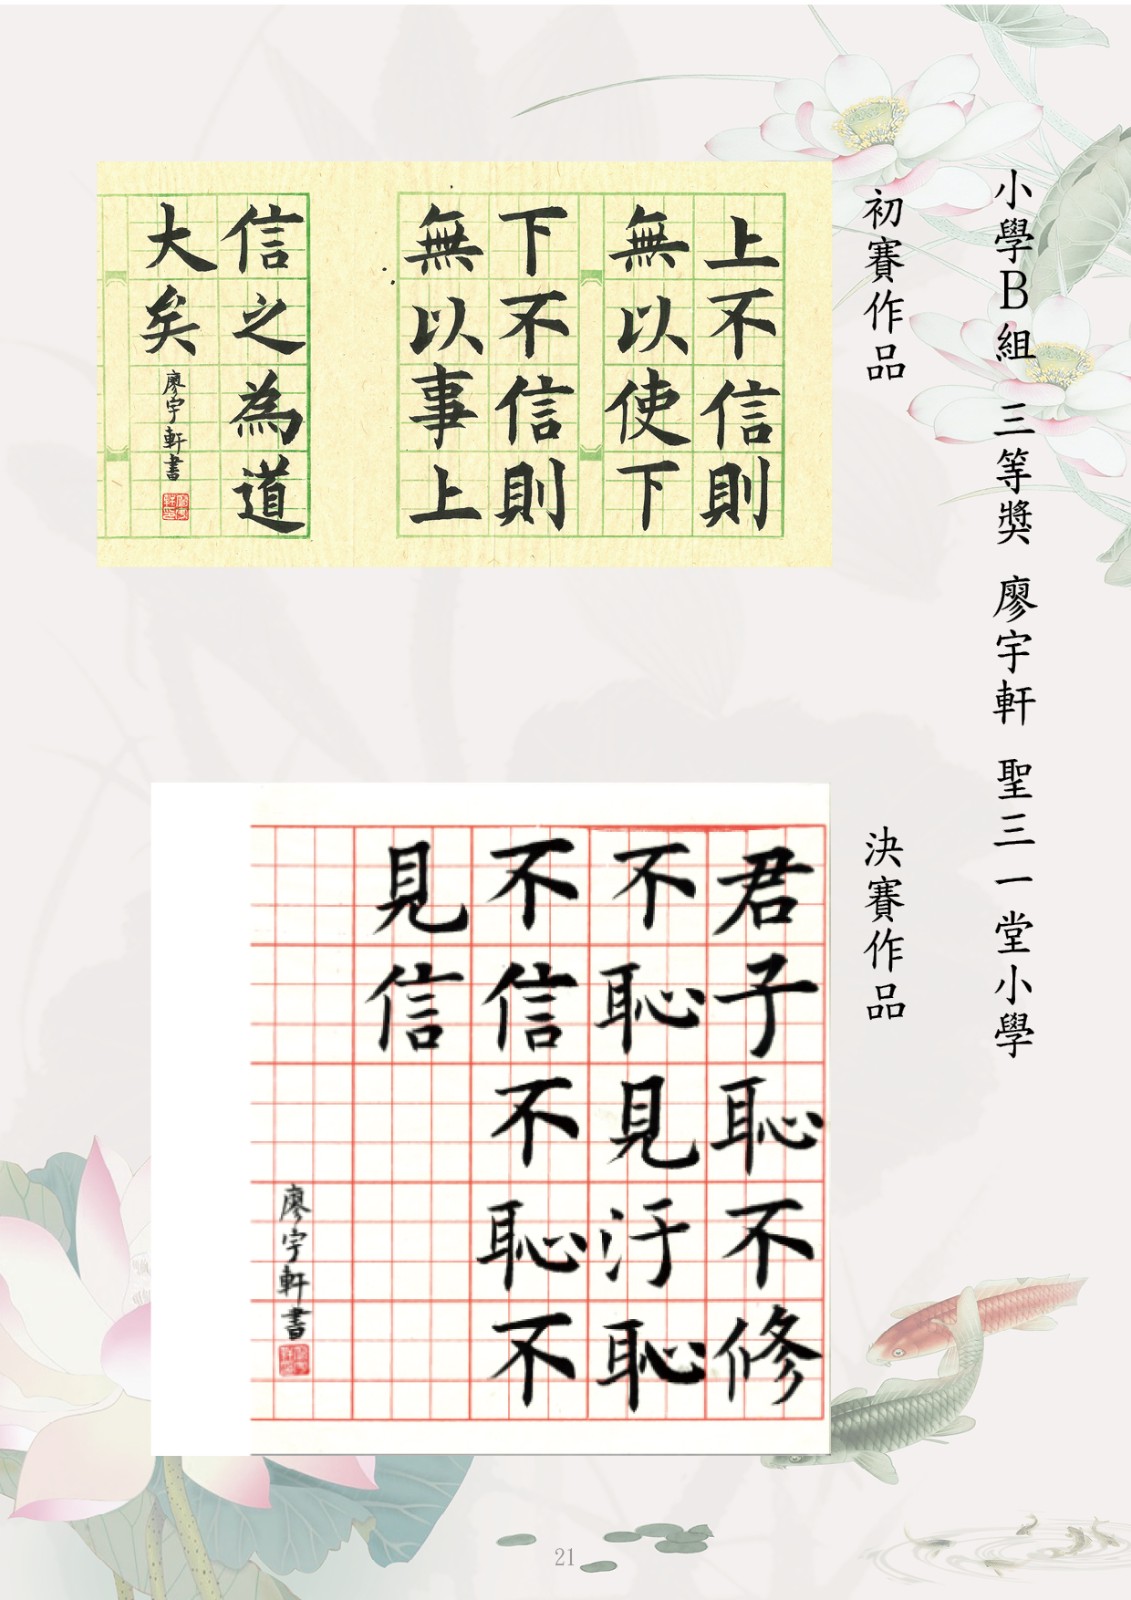 小學B組 三等獎 廖宇軒 聖三一堂小學
初賽作品
上不信則
無以使下
下不信則
無以事上
信之為道
大矣
廖宇軒書
決賽作品
君子恥不修
不恥見汙恥
不信不恥不
見信
廖宇軒書
21